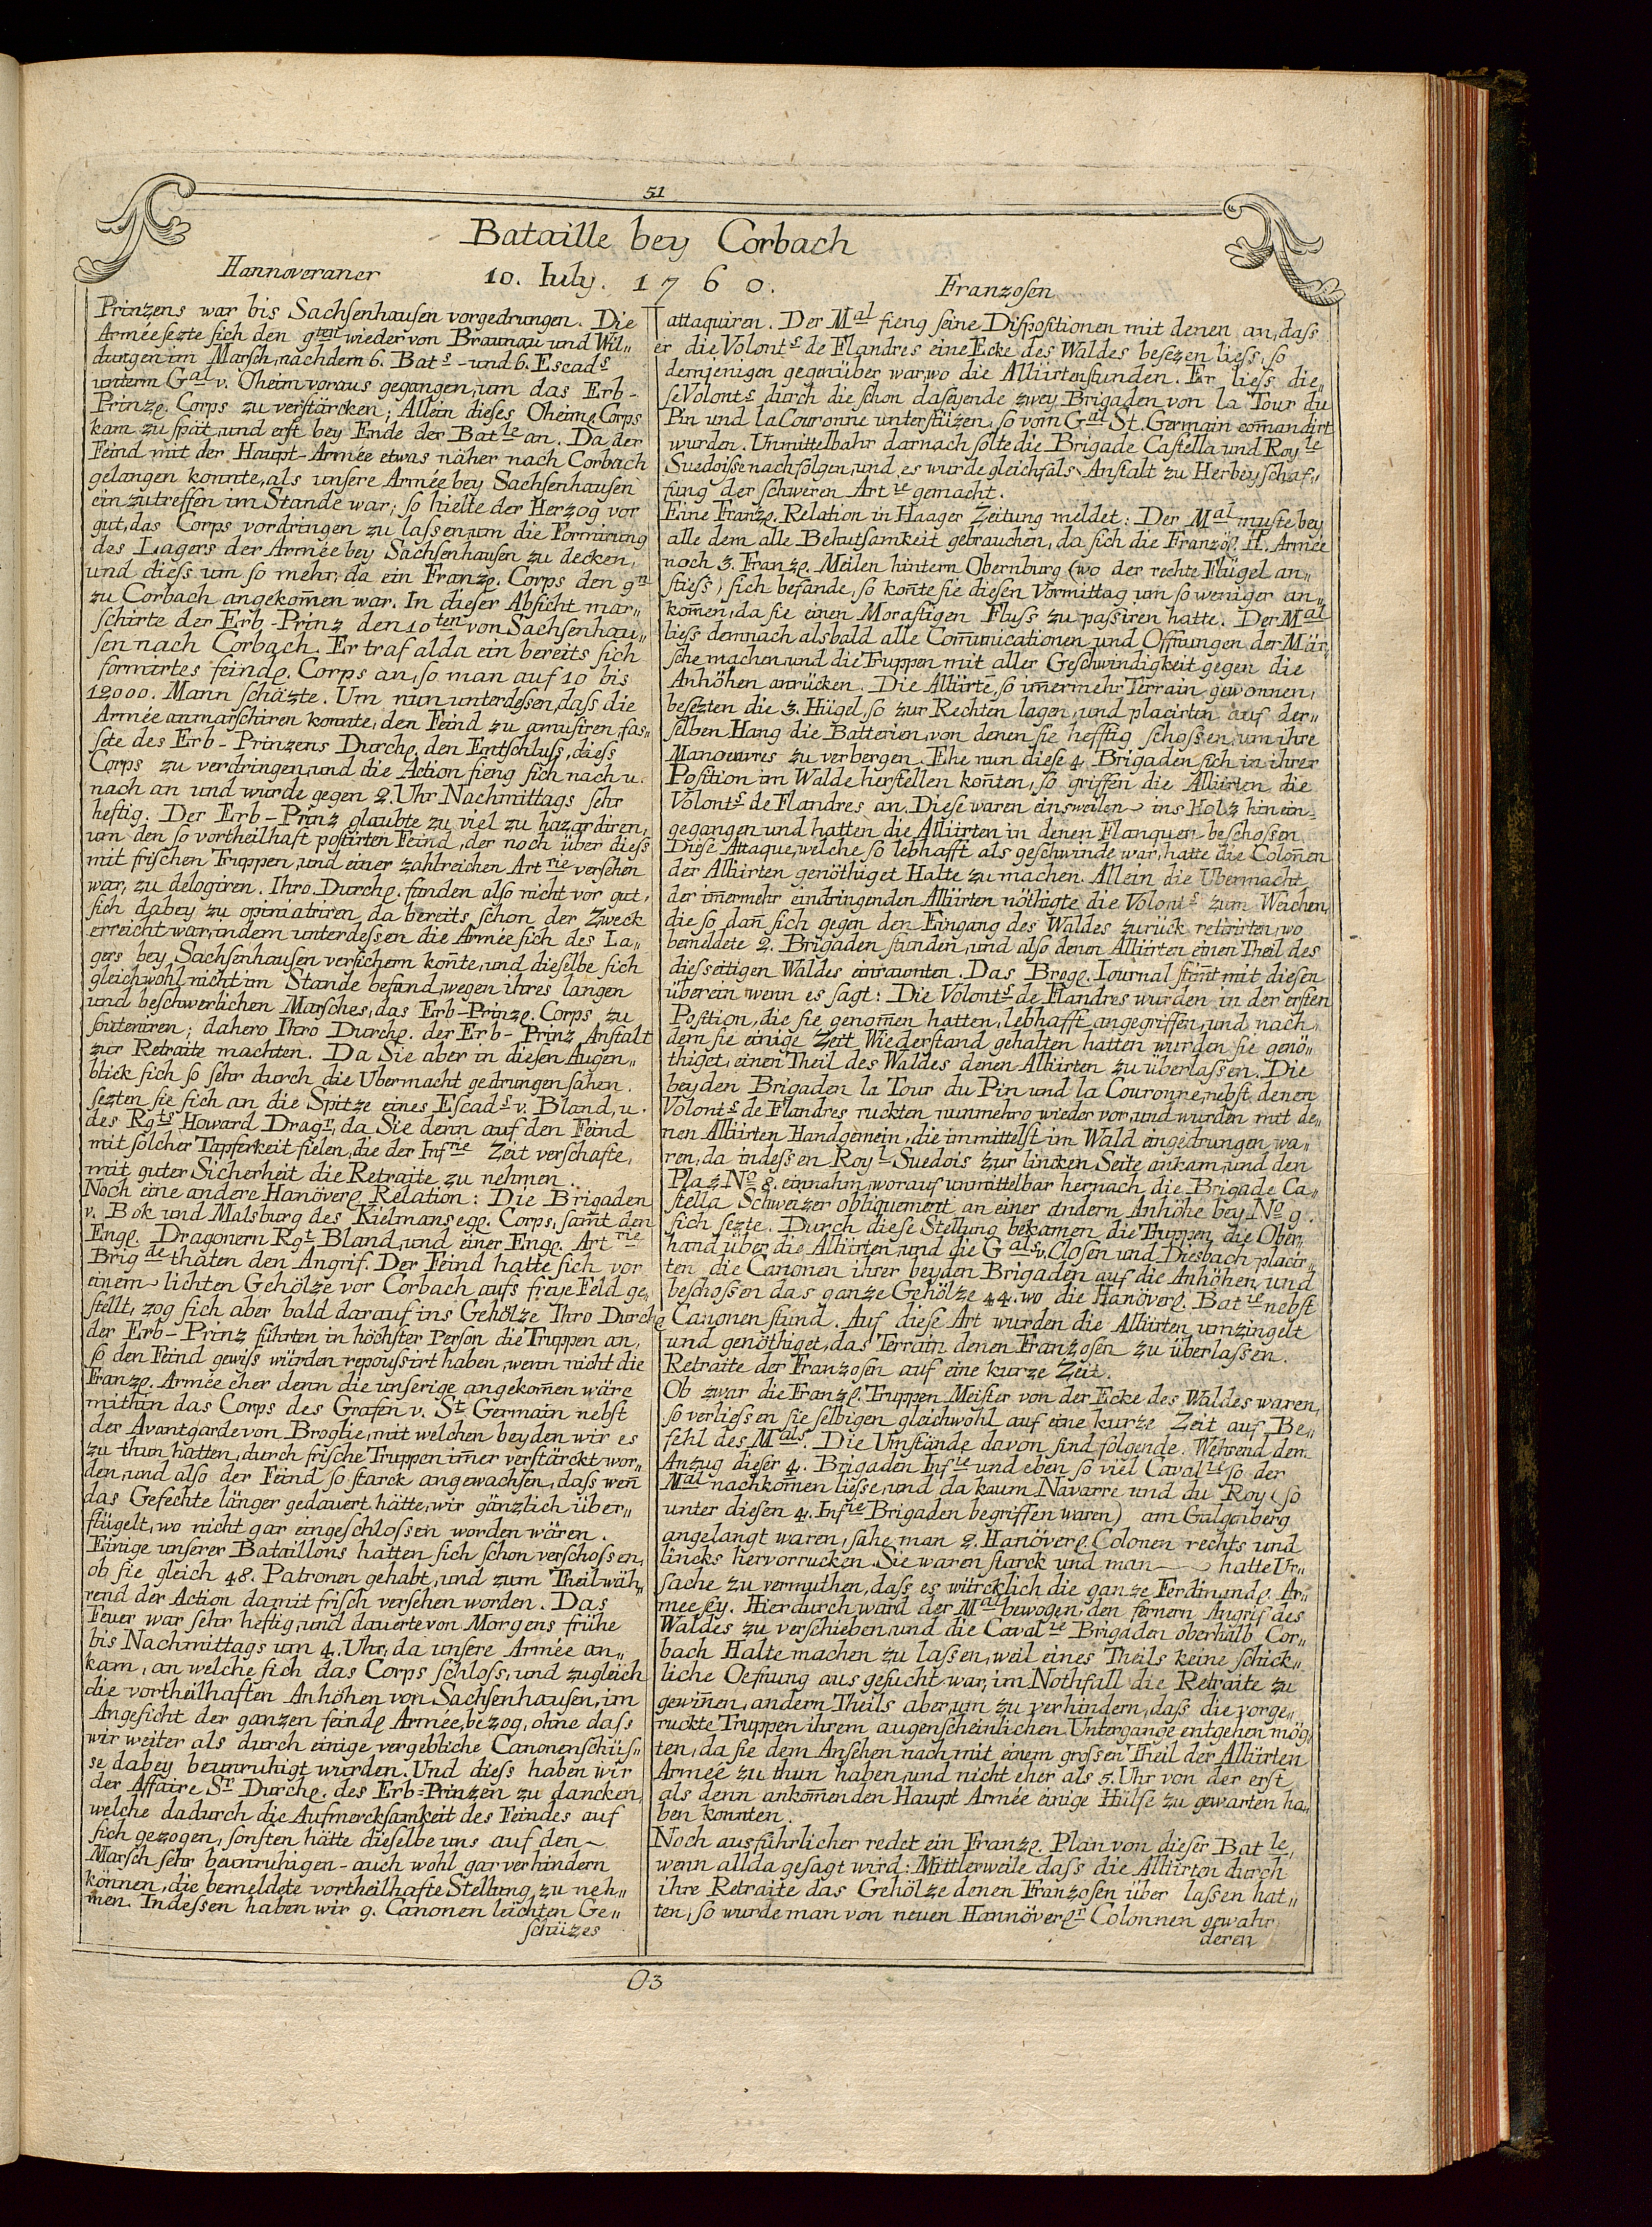 51
Bataille bey Corbach
10. Iuly. 1760.
Hannoveraner
Prinzens war bis Sachsenhausen vorgedrungen. Die
Armée sezte sich den 9ten wieder von Braunau und Wil„
dungen im Marsch, nachdem 6. Bats- und 6. Escads
unterm Gal v. Oheim voraus gegangen, um das Erb-
Prinzl. Corps zu verstärcken; Allein dieses Oheime Corps
kam zu spät, und erst bey Ende der Batle an. Da der
Feind mit der Haupt-Armée etwas näher nach Corbach
gelangen konnte, als unsere Armée bey Sachsenhausen
einzutreffen im Stande war; so hielte der Herzog vor
gut, das Corps vordringen zu lassen, um die Formirung
des Lagers der Armée bey Sachsenhausen zu decken,
und diess um so mehr, da ein Franzl. Corps den 9n
zu Corbach angekom̄en war. In dieser Absicht mar„
schirte der Erb-Prinz den 10ten von Sachsenhau„
sen nach Corbach. Er traf alda ein bereits sich
formirtes feindl. Corps an, so man auf 10 bis
12000. Mann schäzte. Um nun unterdessen, dass die
Armée anmarschiren konnte, den Feind zu amusiren, fas„
sete des Erb-Prinzens Durchl. den Entschluss, diess
Corps zu verdringen, und die Action fieng sich nach u.
nach an und wurde gegen 2. Uhr Nachmittags sehr
heftig. Der Erb-Prinz glaubte zu viel zu hazardiren,
um den so vortheilhaft postirten Feind, der noch über diess
mit frischen Truppen, und einer zahlreichen Artrie versehen
war, zu delogiren. Ihro Durchl. funden also nicht vor gut,
sich dabey zu opiniatriren, da bereits schon der Zweck
erreicht war, indem unterdessen die Armée sich des La„
gers bey Sachsenhausen versichern kon̄te, und dieselbe sich
gleichwohl nicht im Stande befand, wegen ihres langen
und beschwerlichen Marsches, das Erb-Prinzl. Corps zu
souteniren; dahero Ihro Durchl. der Erb-Prinz Anstalt
zur Retraite machten. Da Sie aber in diesen Augen„
blick sich so sehr durch die Ubermacht gedrungen sahen.
sezten sie sich an die Spitze eines Escads v. Bland, u.
des Rgts Howard Dragr, da Sie denn auf den Feind
mit solcher Tapferkeit fielen, die der Infrie Zeit verschafte,
mit guter Sicherheit die Retraite zu nehmen.
Noch eine andere Hanöverl. Relation: Die Brigaden
v. Bok und Malsburg des Kielmanseggl. Corps, sam̄t den
Engl. Dragonern Rgt Bland, und einer Engl. Artrie
Brigde thaten den Angrif. Der Feind hatte sich vor
einem lichten Gehölze vor Corbach aufs freye Feld ge„
stellt, zog sich aber bald darauf ins Gehölze Ihro Durchl.
der Erb-Prinz führten in höchster Person die Truppen an,
so den Feind gewiss würden repoussirt haben, wenn nicht die
Franzl. Armée eher denn die unserige angekom̄en wäre
mithin das Corps des Grafen v. St. Germain nebst
der Avantgarde von Broglie, mit welchen beyden wir es
zu thun hatten, durch frische Truppen im̄er verstärckt wor„
den, und also der Feind so starck angewachsen, dass wen̄
das Gefechte länger gedauert hätte, wir gänzlich über„
flügelt, wo nicht gar eingeschlossen worden wären.
Einige unserer Bataillons hatten sich schon verschossen,
ob sie gleich 48. Patronen gehabt, und zum Theil wäh„
rend der Action damit frisch versehen worden. Das
Feuer war sehr heftig, und dauerte von Morgens frühe
bis Nachmittags um 4. Uhr, da unsere Armée an„
kam, an welche sich das Corps schloss, und zugleich
die vortheilhaften Anhöhen von Sachsenhausen, im
Angesicht der ganzen feindl Armée, bezog, ohne dass
wir weiter als durch einige vergebliche Canonenschüs„
se dabey beunruhigt wurden. Und diess haben wir
der Affaire Sr Durchl. des Erb-Prinzen zu dancken,
welche dadurch die Aufmercksamkeit des Feindes auf
sich gezogen, sonsten hätte dieselbe uns auf den
Marsch sehr beunruhigen - auch wohl gar verhindern
können, die bemeldete vortheilhafte Stellung zu neh„
men. Indessen haben wir 9. Canonen leichten Ge„
schüzes
Franzosen
attaquiren. Der Mal fieng seine Dispositionen mit denen an, dass
er die Volonts de Flandres eine Ecke des Waldes besezen liess, so
demjenigen gegenüber war, wo die Alliirten stunden. Er liess die„
se Volonts durch die schon daseyende zwey Brigaden von la Tour du
Pin und la Couronne unterstüzen, so vom Gal St. Germain com̄andirt
wurden. Unmittelbahr darnach solte die Brigade Castella und Royle
Suedoisse nachfolgen, und es wurde gleichfals Anstalt zu Herbeyschaf„
fung der schweren Artie gemacht.
Eine Franzl. Relation in Haager Zeitung meldet: Der Mal muste bey
alle dem alle Behutsamkeit gebrauchen, da sich die Französl. H. Armée
noch 3. Franzl. Meilen hintern Obernburg (wo der rechte Flügel an„
stiess) sich befande, so kon̄te sie diesen Vormittag um so weniger an„
kom̄en, da sie einen Morastigen Fluss zu passiren hatte. Der Mal
liess demnach alsbald alle Com̄unicationen und Offnungen der Mär„
sche machen, und die Truppen mit aller Geschwindigkeit gegen die
Anhöhen anrücken. Die Alliirte, so im̄ermehr Terrain gewonnen,
besezten die 3. Hügel, so zur Rechten lagen, und placirten auf der„
selben Hang die Batterien, von denen sie hefftig schossen, um ihre
Manoeuvres zu verbergen. Ehe nun diese 4. Brigaden sich in ihrer
Position im Walde herstellen kon̄ten, so griffen die Alliirten die
Volonts de Flandres an. Diese waren einsweilen ins Holz hinein-
gegangen und hatten die Alliirten in denen Flanquen beschossen
Diese Attaque, welche so lebhafft als geschwinde war, hatte die Colon̄en
der Alliirten genöthiget Halte zu machen. Allein die Ubermacht
der im̄ermehr eindringenden Alliirten nöthigte die Volonts zum Weichen,
die so dan̄ sich gegen den Eingang des Waldes zurück retirirten, wo
bemeldete 2. Brigaden stunden, und also denen Alliirten einen Theil des
diesseitigen Waldes einraumten. Das Brogl. Iournal stim̄t mit diesen
überein wenn es sagt: Die Volonts de Flandres wurden in der ersten
Position, die sie genom̄en hatten, lebhafft angegriffen, und nach
dem sie einige Zeit Wiederstand gehalten hatten wurden sie genö„
thiget, einen Theil des Waldes denen Alliirten zu überlassen. Die
beyden Brigaden la Tour du Pin und la Couronne, nebst denen
Volonts de Flandres ruckten nunmehro wieder vor, und wurden mit de„
nen Alliirten Handgemein, die immittelst im Wald eingedrungen wa„
ren, da indessen Royl Suedois zur lincken Seite ankam, und den
Plaz No 8. einnahm, worauf unmittelbar hernach die Brigade Ca„
stella Schweizer obliquement an einer andern Anhöhe bey No 9.
sich sezte. Durch diese Stellung bekamen die Truppen die Ober„
hand über die Alliirten, und die Gals v. Closen und Diesbach placir„
ten die Canonen ihrer beyden Brigaden auf die Anhöhen, und
beschossen das ganze Gehölze 44. wo die Hanöverl. Batie nebst
Canonen stund. Auf diese Art wurden die Alliirten umzingelt
und genöthiget, das Terrain denen Franzosen zu überlassen.
Retraite der Franzosen auf eine kurze Zeit.
Ob zwar die Franzl. Truppen Meister von der Ecke des Waldes waren,
so verliessen sie selbigen gleichwohl auf eine kurze Zeit auf Be„
fehl des Mals. Die Umstände davon sind folgende. Wehrend dem
Anzug dieser 4. Brigaden Infie und eben so viel Cavalie so der
Mal nachkom̄en liesse, und da kaum Navarre und du Roy (so
unter diesen 4. Infie Brigaden begriffen waren) am Galgenberg
angelangt waren, sahe man 2. Hanöverl. Colonen rechts und
lincks hervorrucken. Sie waren starck und man hatte Ur„
sache zu vermuthen, dass es würcklich die ganze Ferdinandl. Ar„
mee sey. Hierdurch ward der Mal bewogen, den fernern Angrif des
Waldes zu verschieben, und die Cavalie Brigaden oberhalb Cor„
bach Halte machen zu lassen, weil eines Theils keine schick„
liche Oefnung ausgesucht war, im Nothfall die Retraite zu
gewin̄en, andern Theils aber, um zu verhindern, dass die vorge„
ruckte Truppen ihrem augenscheinlichen Untergange entgehen mög„
ten, da sie dem Ansehen nach mit einem grossen Theil der Alliirten
Armée zu thun haben, und nicht eher als 5. Uhr von der erst
als denn ankom̄enden Haupt Armée einige Hülfe zu gewarten ha„
ben konnten.
Noch ausführlicher redet ein Franzl. Plan von dieser Batle,
wenn allda gesagt wird: Mittlerweile dass die Alliirten durch
ihre Retraite das Gehölze denen Franzosen über lassen hat„
ten, so wurde man von neuen Hannöverln Colonnen gewahr
deren
O3